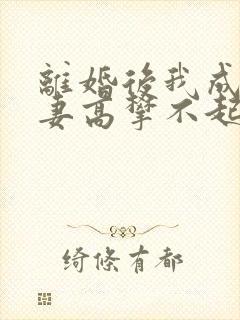 離婚後我成
妻高攀不起
綺條有都